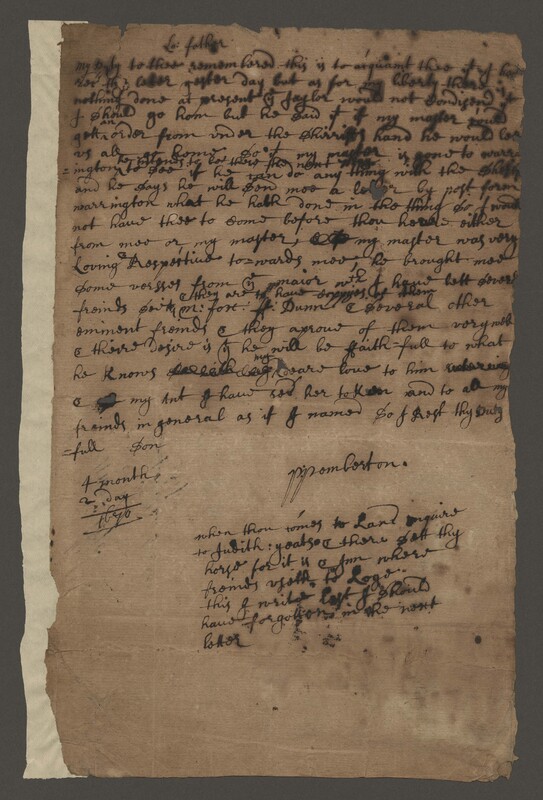 Lo: father
my Duty to thee remembered this is to acquaint thee yt I have
rec: thy leter yester day but as for my liberty there is
nothing done at present ye Jaylor would not Condisend yt
I should go hom but he said if my master could
gett an order from under the Sherriffs hand he would let
us all go home So my master is gone to warr=
=ington to See if he can do any thing with the Sheriff
he intends to be there the next
and he Says he will Sen mee a letter by post from
warrington what he hath done in the thing So I would
not have thee to Come before thou heare either
from mee or my master, my master was very
Loving & Respective to=wards mee he brought mee
Some verses from ye major wch I have lett Severall
freinds See & they are to have coppies of them
G: fox Dunn & Severall other
eminent freinds & they aprove of them very well
& theire desire is yt he will be ffaith=full to what
he knows my deare love to him
& my Ant I have sed her token and to all my
freinds in general as if I named So I Rest thy Duty
=full Son
4 month
2: day
1670
PPemberton.
when thou comes to Land inquire
to Judith: yeats & there Sett thy
horse for it is & Inn where
freinds useth to Loge.
this I write lest I Should
have forgotten in the next
letter